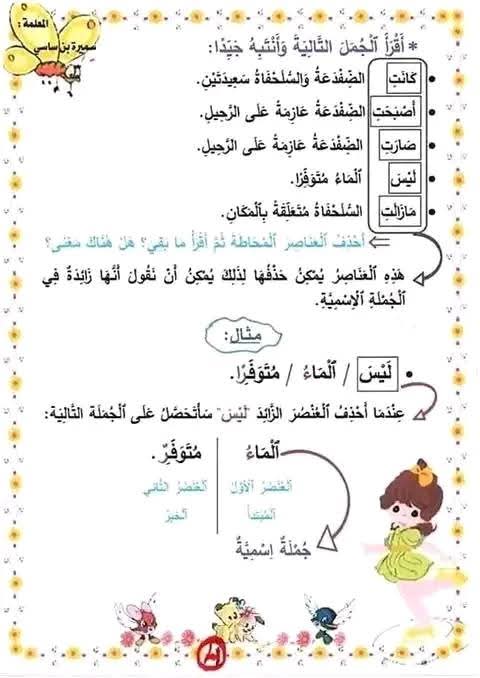 المعلمة :
سميرة بن ساسي
* أَقْرَأُ ٱلْجُمَلَ التَّالِيَةَ وَأَنْتَبِهُ جَيِّدًا:
• كَانَتِ الضِّفْدَعَةُ وَالسُّلَحْفَاةُ سَعِيدَتَيْنِ.
• أَصْبَحَتِ الضِّفْدَعَةُ عَازِمَةً عَلَى الرَّحِيلِ.
• صَارَتِ الضِّفْدَعَةُ عَازِمَةً عَلَى الرَّحِيلِ.
• لَيْسَ ٱلْمَاءُ مُتَوَفِّرًا.
• مَازَالَتِ السُّلَحْفَاةُ مُتَعَلِّقَةً بِٱلْمَكَانِ.
أَحْذِفُ ٱلْعَنَاصِرَ ٱلْمُحَاطَةَ ثُمَّ أَقْرَأُ مَا بَقِيَ؟ هَلْ هُنَاكَ مَعْنًى؟
هَذِهِ ٱلْعَنَاصِرُ يُمْكِنُ حَذْفُهَا لِذَلِكَ يُمْكِنُ أَنْ نَقُولَ أَنَّهَا زَائِدَةٌ فِي
ٱلْجُمْلَةِ ٱلْاِسْمِيَّةِ.
مِثَال:
• لَيْسَ / ٱلْمَاءُ / مُتَوَفِّرًا.
عِنْدَمَا أَحْذِفُ ٱلْعُنْصُرَ الزَّائِدَ "لَيْسَ" سَأَتَحَصَّلُ عَلَى ٱلْجُمْلَةِ التَّالِيَةِ:
ٱلْمَاءُ مُتَوَفِّرٌ.
ٱلْعُنْصُرُ ٱلْأَوَّلُ ٱلْعُنْصُرُ الثَّانِي
ٱلْمُبْتَدَأُ ٱلْخَبَرُ
جُمْلَةٌ اِسْمِيَّةٌ